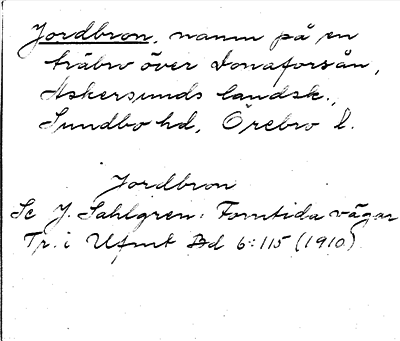 Jordbron, namn på en
träbro över Donaforsån,
Askersunds landsk.,
Sundbo hd, Örebro l.
Jordbron
Se J. Sahlgren: Forntida vägar
Tr. i Ufmt Bd 6:115 (1910)